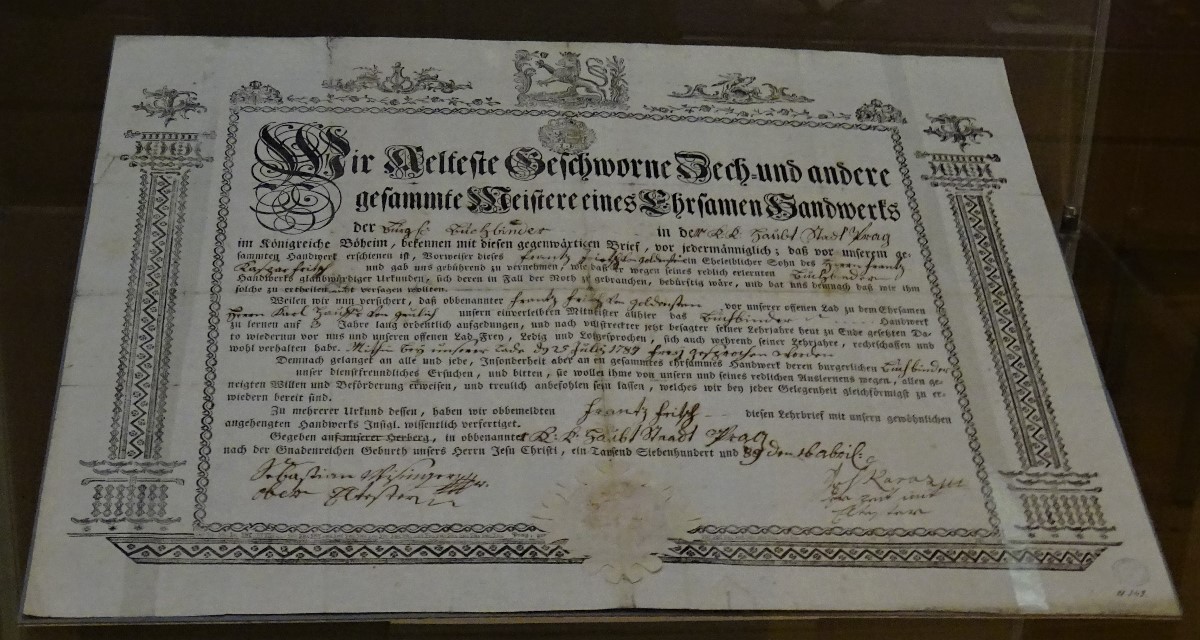 Wir Aelteste Geschworne Zech-und andere
gesammte Meistere eines Ehrsamen Handwerks
der Buchbinder in der K. K. Haubt Stadt Prag
im Königreiche Böheim, bekennen mit diesen gegenwärtigen Brief, vor jedermänniglich; daß vor unserem ge-
sammten Handwerk erschienen ist, Vorweiser dieses Frantz ein Eheleiblicher Sohn des Herrn Frantz
Kaspar Fritsch und gab uns gebührend zu vernehmen, wie daß er wegen seines redlich erlernten Buchbinder
Handwerks glaubwürdiger Urkunden, sich deren in Fall der Noth zu gebrauchen, bedürftig wäre, und hat uns demnach daß wir ihm
solche zu ertheilen nicht versagen wollten.
Weilen wir nun versichert, daß obbenannter Frantz von Goldenstein vor unserer offenen Lad zu dem Ehrsamen
Herrn Karl unsern einverleibten Mitmeister allhier das Buchbinder Handwerk
zu lernen auf 3 Jahre lang ordentlich aufgedungen, und nach vollstreckter jetzt besagter seiner Lehrjahre heut zu Ende gesetzten Da-
to wiederum vor uns und unseren offenen Lad Frey, Ledig und Loßgesprochen, sich auch während seiner Lehrjahre, rechtschaffen und
wohl verhalten habe. bey unserer Lade den 25 July 1789 frey gesprochen worden
Demnach gelanget an alle und jede, Insonderheit aber an ein gesammtes ehrsames Handwerk deren burgerlichen Buchbinder
unser dienstfreundliches Ersuchen, und bitten, sie wollen ihme von unsern und seines redlichen Auslernens wegen, allen ge-
neigten Willen und Beförderung erweisen, und treulich anbefohlen seyn lassen, welches wir bey jeder Gelegenheit gleichförmigst zu er-
wiedern bereit sind.
Zu mehrerer Urkund dessen, haben wir obbemeldten Frantz Fritsch diesen Lehrbrief mit unsern gewöhnlichen
angehengten Handwerks Insigl. wissentlich verfertiget.
Gegeben auf unserer Herberg, in obbenannter K: K: Haubt Staadt Prag
nach der Gnadenreichen Geburth unsers Herrn Jesu Christi, ein Tausend Siebenhundert und 89 den 16
Sebastian
ober
Eltester